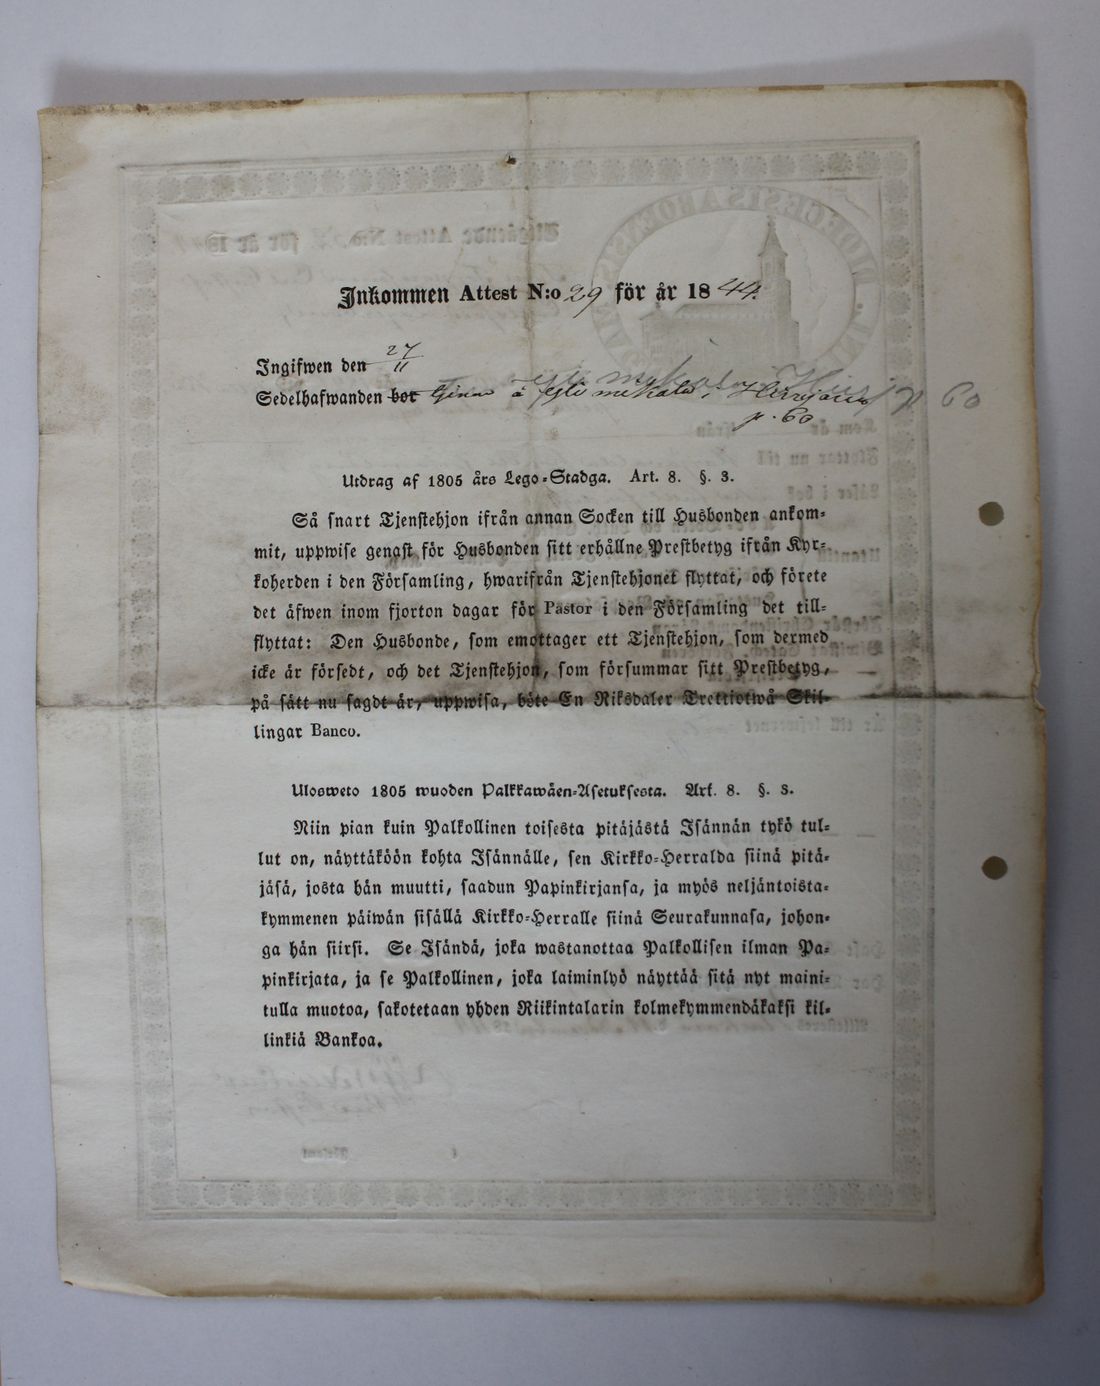 Inkommen Attest N:o 29 för år 1844.
Ingifwen den 27/11
Sedelhafwanden bor tjenar å
p. 60
p 60
Utdrag af 1805 års Lego-Stadga. Art. 8. §. 3.
Så snart Tjenstehjon ifrån annan Socken till Husbonden ankom-
mit, uppwise genast för Husbonden sitt erhållne Prestbetyg ifrån Kyr-
koherden i den Församling, hwarifrån Tjenstehjonet flyttat, och förete
det äfwen inom fjorton dagar för Pastor i den Församling det till-
flyttat: Den Husbonde, som emottager ett Tjenstehjon, som dermed
icke är försedt, och det Tjenstehjon, som försummar sitt Prestbetyg,
på sätt nu sagdt är, uppwisa, böte En Riksdaler Trettiotwå Skil-
lingar Banco.
Ulosweto 1805 wuoden Palkkawäen-Asetuksesta. Art. 8. §. 3.
Niin pian kuin Palkollinen toisesta pitäjästä Isännän tykö tul-
lut on, näyttäköön kohta Isännälle, sen Kirkko-Herralda siinä pitä-
jäsä, josta hän muutti, saadun Papinkirjansa, ja myös neljäntoista-
kymmenen päiwän sisällä Kirkko-Herralle siinä Seurakunnasa, johon-
ga hän siirsi. Se Isändä, joka wastanottaa Palkollisen ilman Pa-
pinkirjata, ja se Palkollinen, joka laiminlyö näyttää sitä nyt maini-
tulla muotoa, sakotetaan yhden Riikintalarin kolmekymmendäkaksi kil-
linkiä Bankoa.